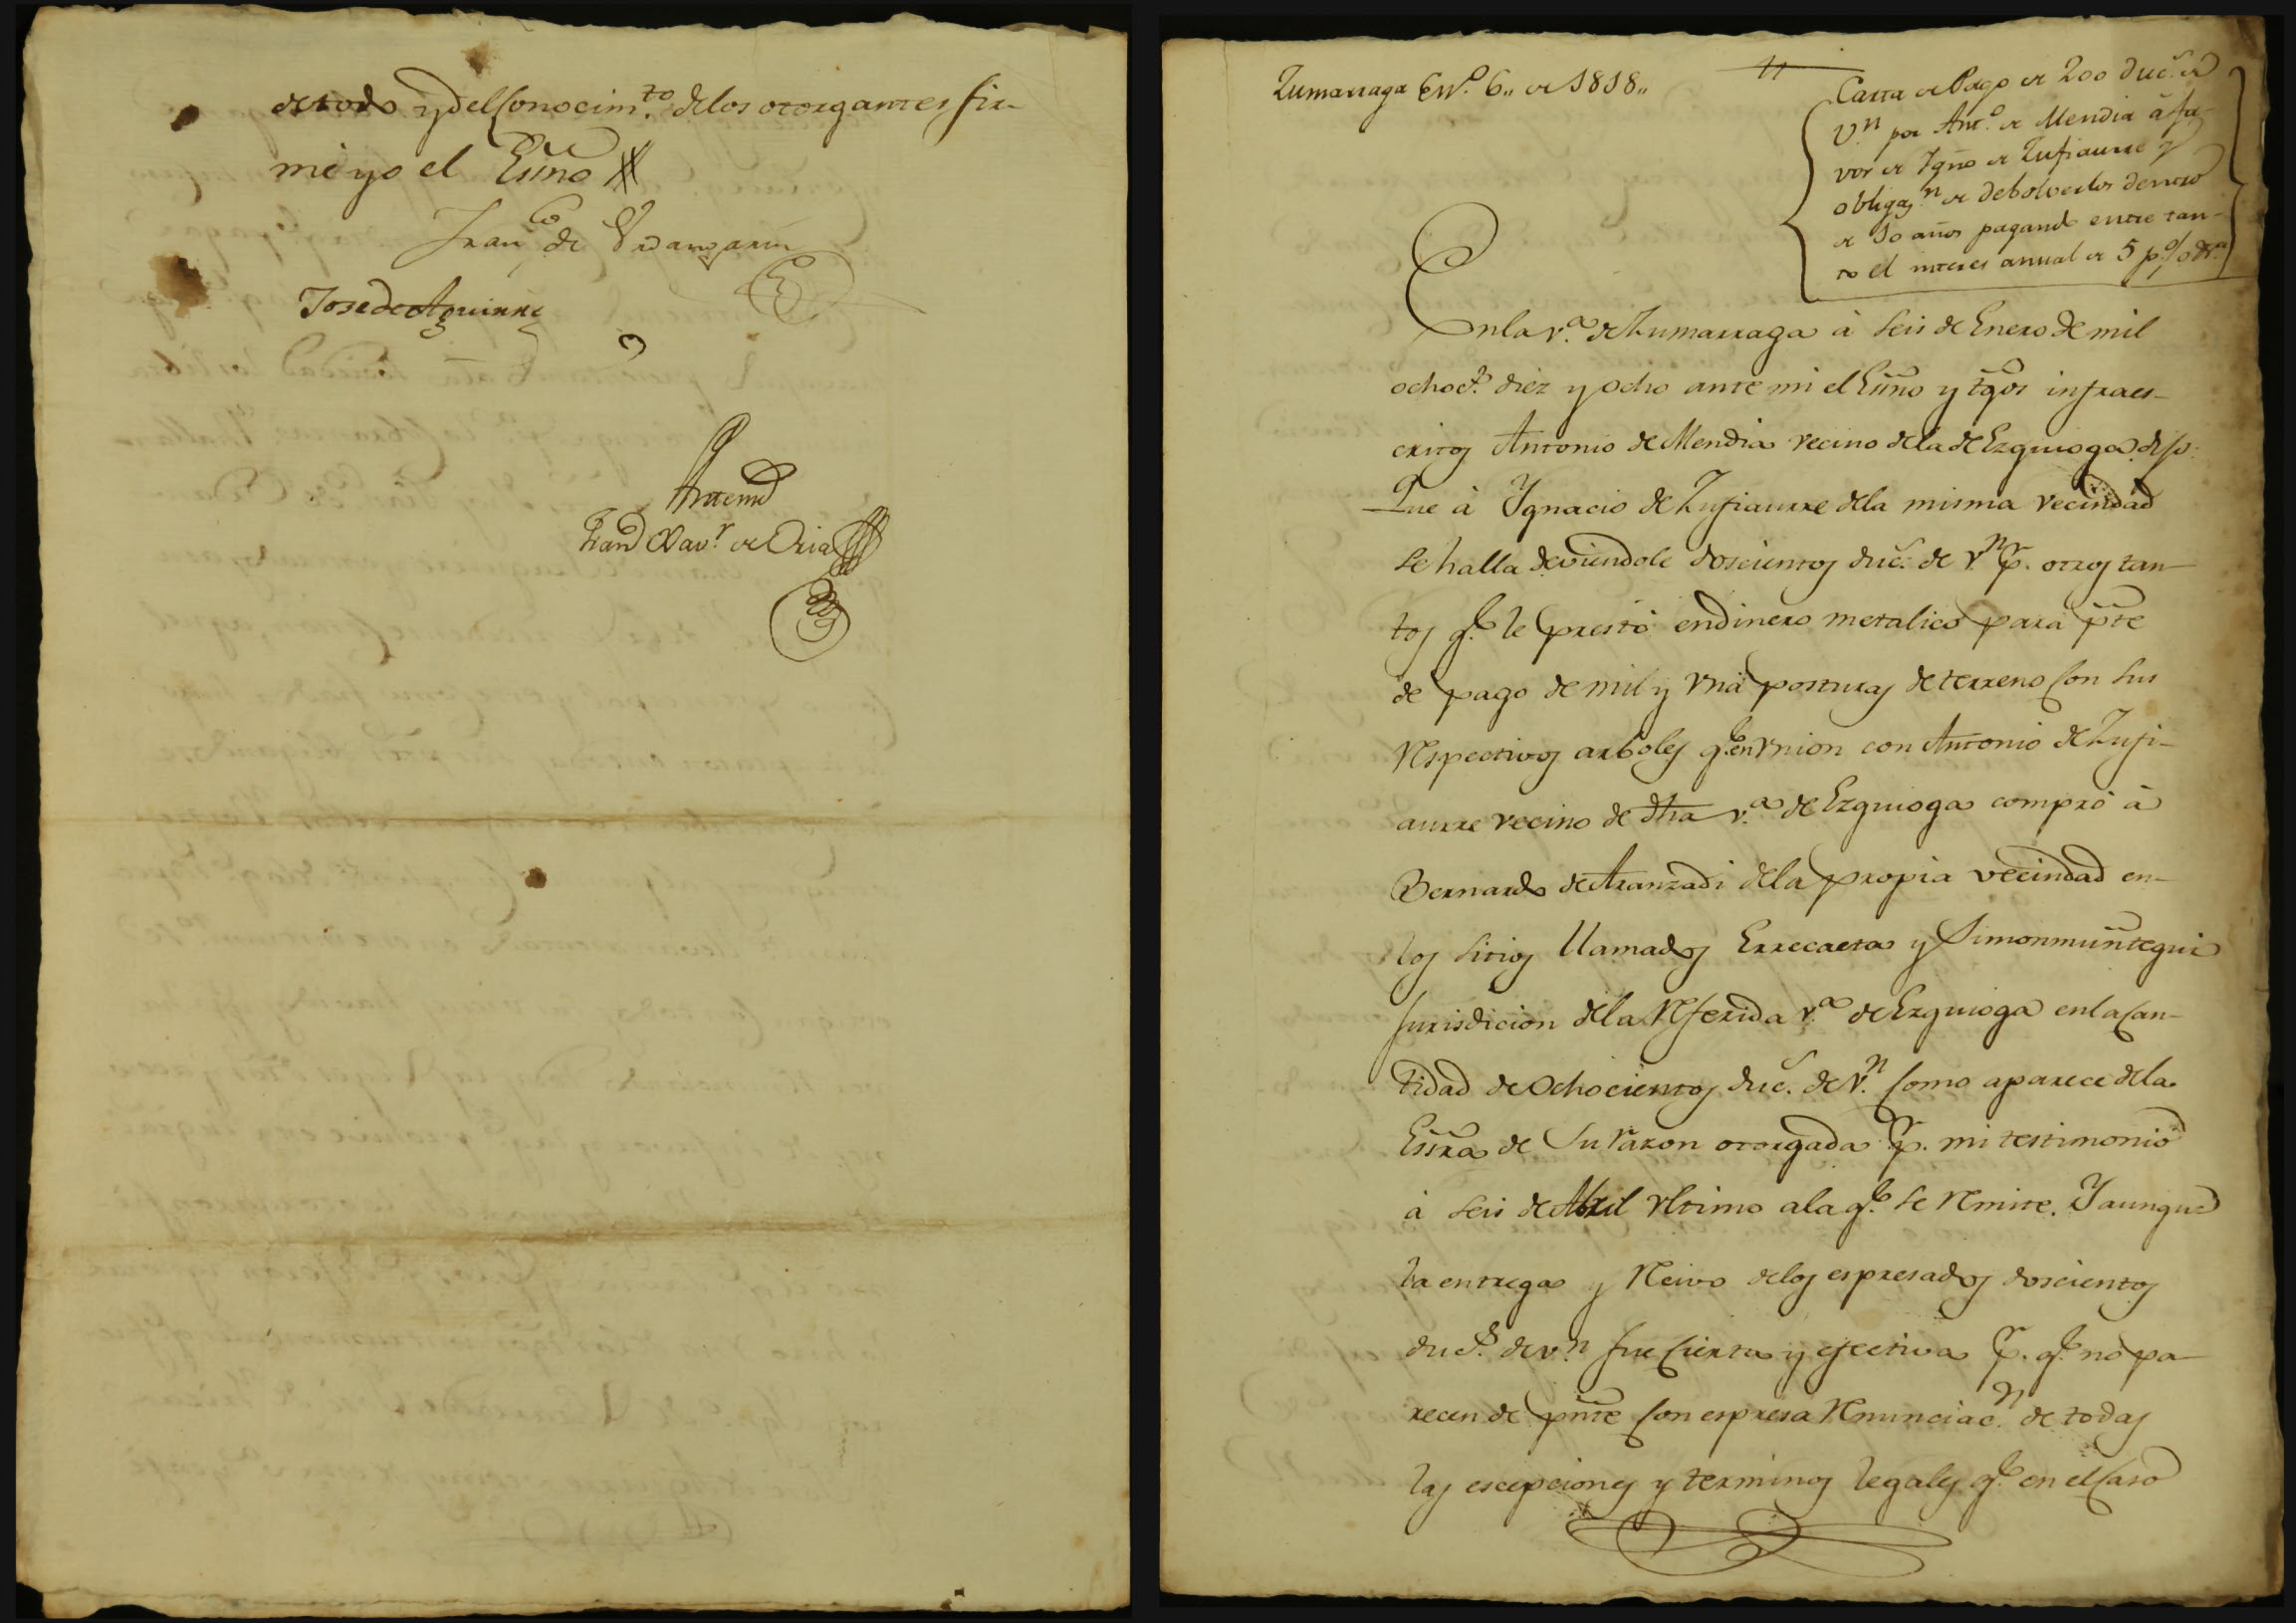 de todo y del Conocim.to de los otorgantes fir-
mé yo el Essno
Fran.co de Urdangarin
Jose de Aguirre
Antemi
Fran.co Xav.r de Oria
Zumarraga En.o 6,, de 1818,,
Carta de Pago de 200 duc.s de
V.n por Ant.o de Mendia á fa-
vor de Ign.o de Zufiaurre y
obligaz.n de debolverlos dentro
de 10 años pagand.o entre tan-
to el interes anual de 5 p.o/o
En la v.a de Zumarraga à seis de Enero de mil
ochoc.s diez y ocho ante mi el Essno y tgos infraes-
critos Antonio de Mendia vecino de la de Ezquioga dijo:
Que à Ygnacio de Zufiaurre de la misma vecindad
se halla deviendole doscientos duc.s de v.n p.r otros tan-
tos q.e le prestó en dinero metalico para pte
de pago de mil y una posturas de terreno con sus
respectivos arboles q.e en union con Antonio de Zufi-
aurre vecino de dha v.a de Ezquioga compró à
Bernardo de Aranzadi de la propia vecindad en
los sitios llamados Errecaeta y Simonmuñtegui
Jurisdicion de la referida v.a de Ezquioga en la can-
tidad de Ochocientos duc.s de v.n como aparece de la
Essra de su razon otorgada p.r mi testimonio
à seis de Abril ultimo a la q.e se remite. Y aunque
la entrega y recivo de los espresados doscientos
duc.s de v.n fue cierta y efectiva p.r q.e no pa-
recen de pnte con espresa renunciac.n de todas
las escepciones y terminos legales q.e en el caso